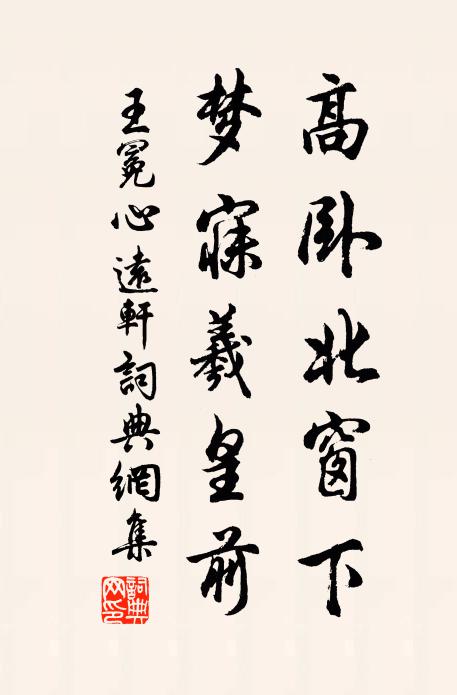 高卧北窗下
梦寐羲皇前
王冕心遠軒詞典網集
詞典网印